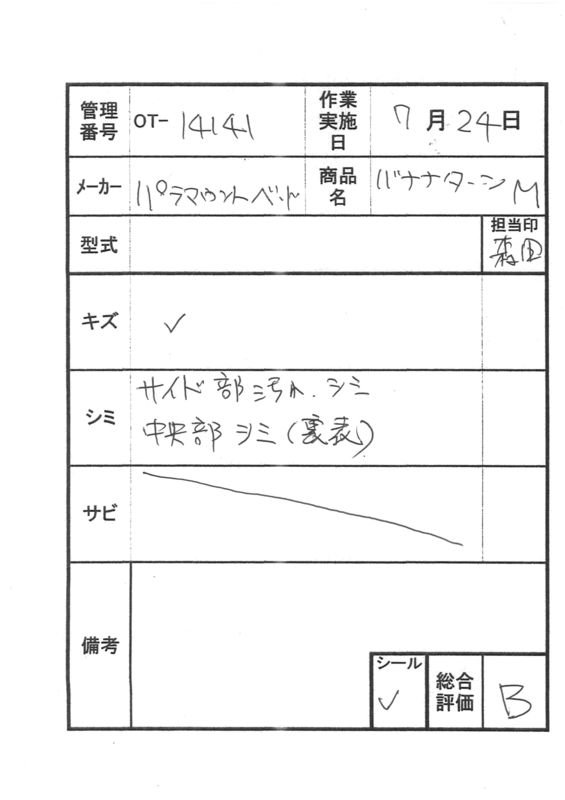 管理番号 OT- 14141 作業実施日 7月24日
メーカー パラマウントベッド 商品名 バナナターン M
型式 担当印
森田
キズ ✓
シミ サイド部汚れ、シミ
中央部シミ(裏表)
サビ
備考
シール ✓ 総合評価 B